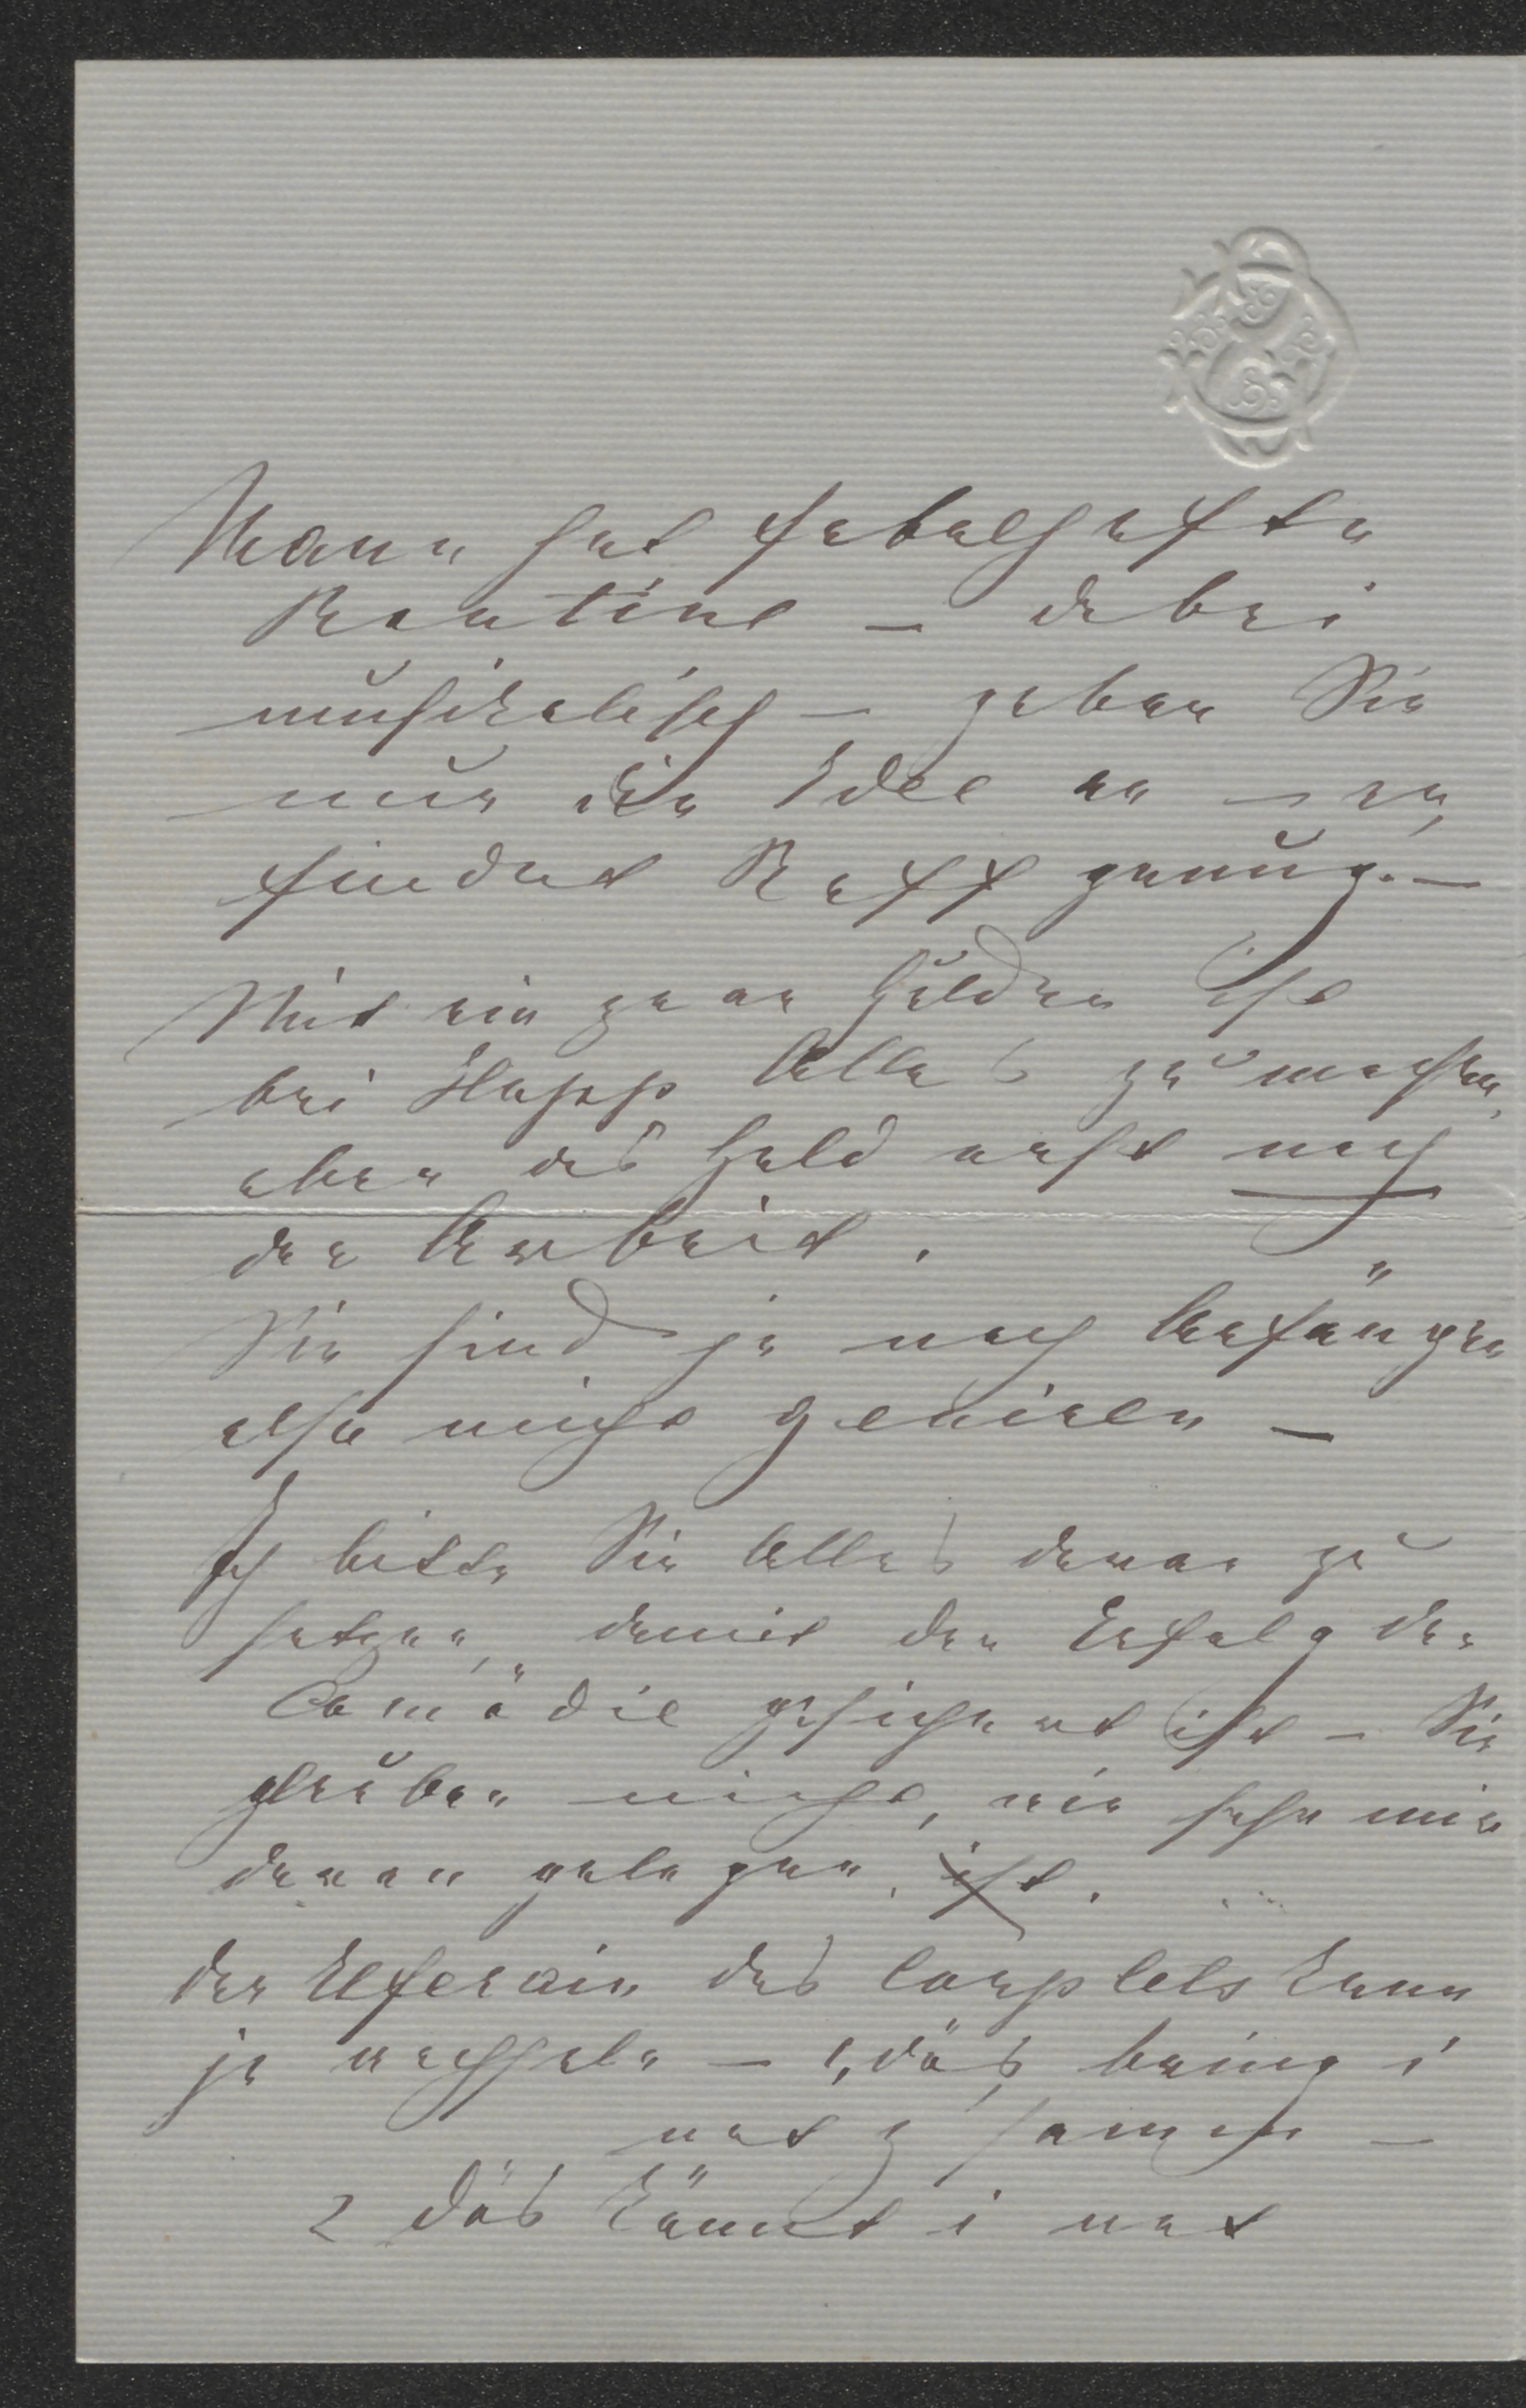 Mann hat fabelhafte
Routine – dabei
musikalisch – geben Sie
nur die Idee an – er
findet Raff genug. –
Mit ein paar Gulden ist
bei Hopp Alles zu machen,
aber das Geld erst nach
der Arbeit.
Sie sind ja noch Anfänger
also nicht geniren –
Ich bitte Sie Alles daran zu
setzen, damit der Erfolg der
Comödie gesichert ist – Sie
glauben nicht, wie sehr mir
daran gelegen. ist.
der Refrain des Couplets kann
ja wechseln – 1, dös bring i
net z'samm –
2 dös könnt i net